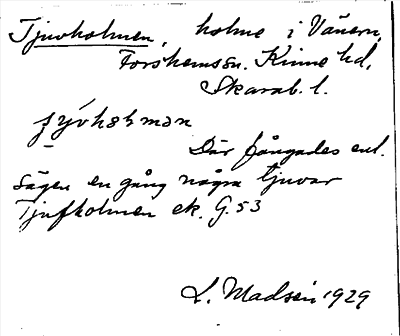 Tjuvholmen, holme i Vänern,
Forshemssn. Kinne hd,
Skarab. l.
Där fångades enl.
sägen en gång några tjuvar
Tjufholmen ek. G. 53
L. Madsén 1929